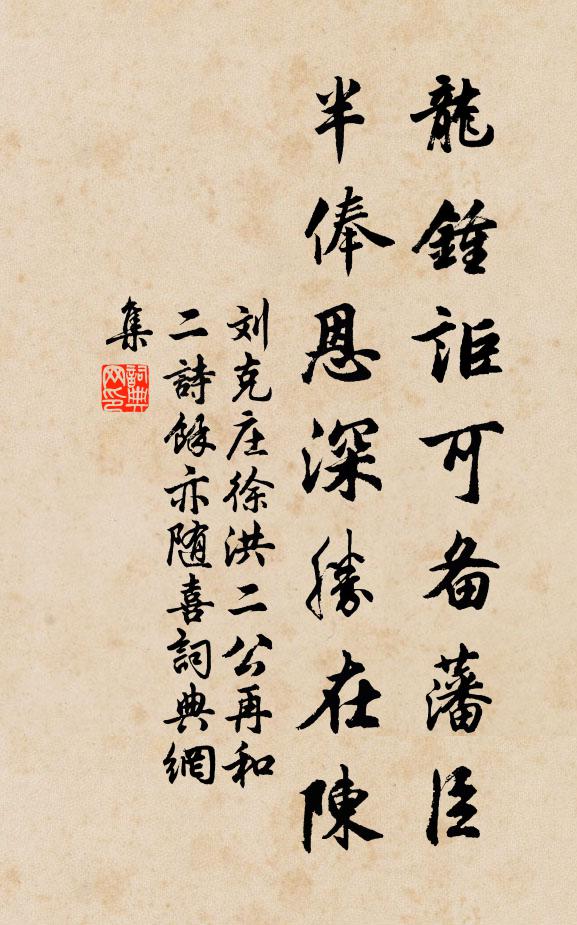 龍鍾詎可备藩臣
半俸恩深勝在陳
刘克庄徐洪二公再和
二詩餘亦随喜詞典網
集
詞典網印